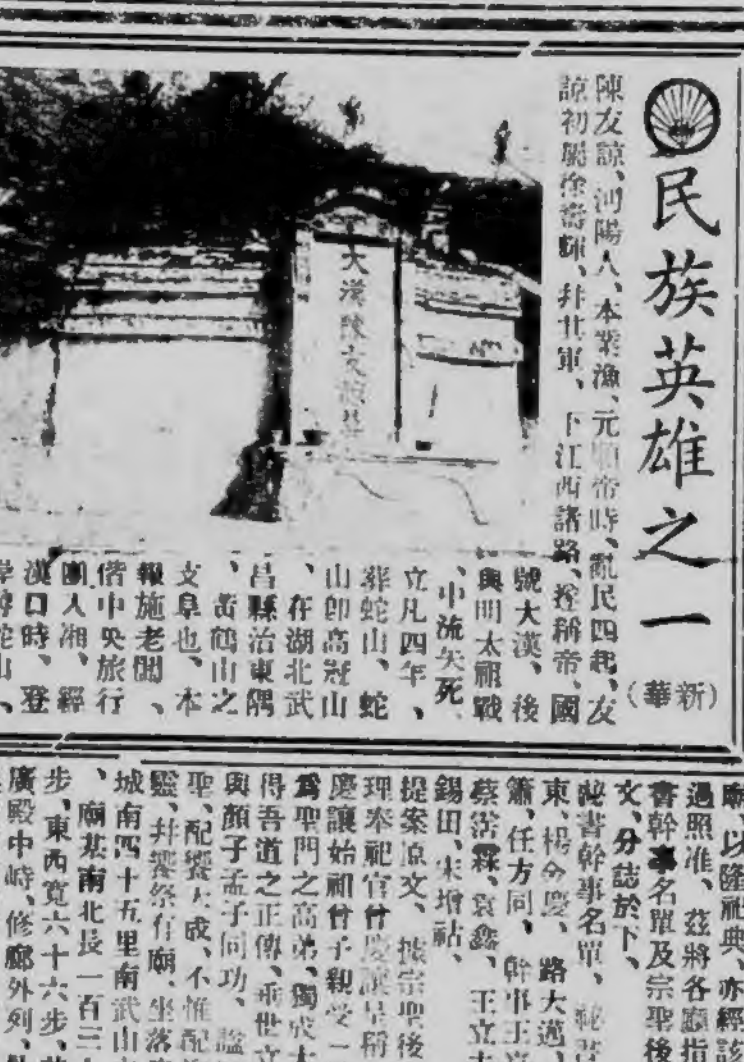 民族英雄之一
(新華)
陳友諒、沔陽人、本業漁、元順帝時、亂民四起、友
諒初屬徐壽輝、幷其軍、下江西諸路、遂稱帝、國
號大漢、後
與明太祖戰
、中流矢死、
立凡四年、
葬蛇山、蛇
山卽高冠山
、在湖北武
昌縣治東隅
、黃鶴山之
文阜也、本
報施老闆、
偕中央旅行
團入湘、經
漢口時、登
蛇山、
大漢陳友諒
廟、以隆祀典、亦經
過照准、茲將各廳指
書幹事名單及宗聖後
文、分誌於下、
秘書幹事名單、秘
東、楊金慶、路大遇、
鏞、任方同、幹事王
蔡霑霖、袁鑫、王立
錫田、宋增祜、
提案原文、據宗聖後
理奉祀官曾慶 呈稱
慶讓始祖曾子親受一
爲聖門之高弟、獨成大
得吾道之正傳、垂世立
與顏子孟子同功、
聖、配饗大成、不惟配
靈、幷饗祭有廟、坐落
城南四十五里南武山
、廟基南北長一百三
步、東西寬六十六步、
廣殿中峙、修廊外列、